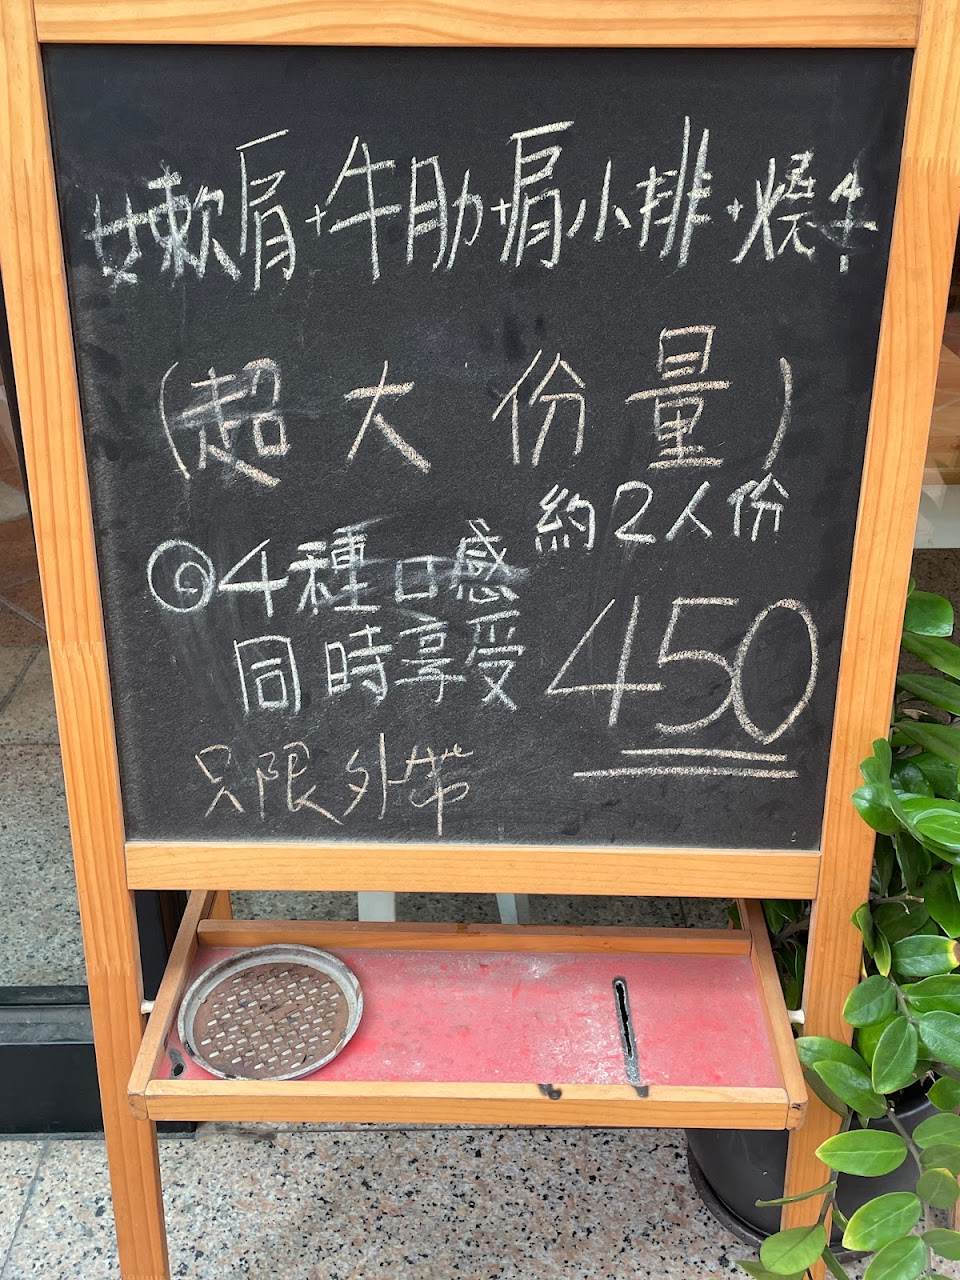 嫩肩+牛肋+肩小排+燒牛
(超大份量)
約2人份
◎4種口感
同時享受
450
只限外帶